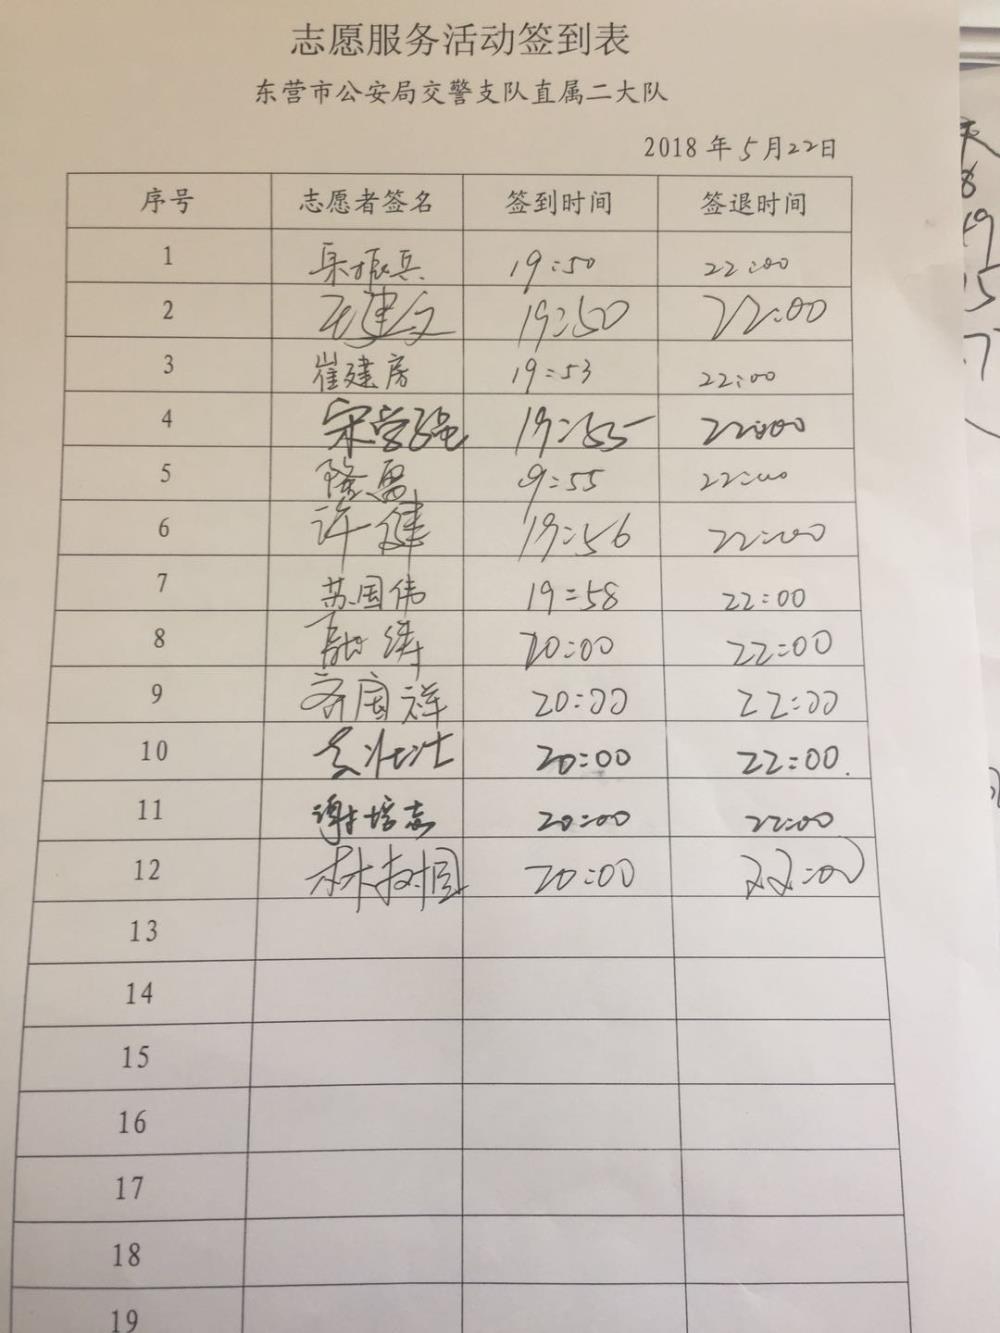 志愿服务活动签到表
东营市公安局交警支队直属二大队
2018 年 5月22日
序号 志愿者签名 签到时间 签退时间
1 振兵 19:50 22:00
2 建文 19:50 22:00
3 崔建房 19:53 22:00
4 宋学强 19:55 22:00
5 9:55 22:00
6 许健 19:56 22:00
7 苏国伟 19:58 22:00
8 20:00 22:00
9 齐国祥 20:00 22:00
10 20:00 22:00.
11 谢培志 20:00 22:00
12 林树国 20:00 22:00
13
14
15
16
17
18
19